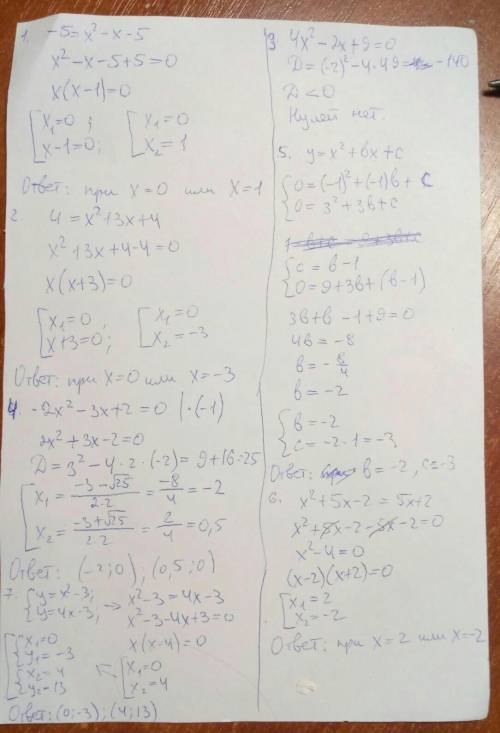 1. -5=x²-x-5
x²-x-5+5=0
x(x-1)=0
[x₁=0; x-1=0; [x₁=0 x₂=1
Ответ: при x=0 или x=1
2 4=x²+3x+4
x²+3x+4-4=0
x(x+3)=0
[x₁=0, x+3=0; [x₁=0 x₂=-3
Ответ: при x=0 или x=-3
4. -2x²-3x+2=0 |·(-1)
2x²+3x-2=0
D=3²-4·2·(-2)=9+16=25
[x₁=(-3-√25)/(2·2)=-8/4=-2
x₂=(-3+√25)/(2·2)=2/4=0,5
Ответ: (-2;0); (0,5;0)
7. {y=x²-3; y=4x-3; → x²-3=4x-3
x²-3-4x+3=0
x(x-4)=0
[x₁=0 x₂=4
[{x₁=0 y₁=-3
{x₂=4 y₂=13
Ответ: (0;-3); (4;13)
3 4x²-2x+9=0
D=(-2)²-4·4·9= -140
D<0
Нулей нет.
5. y=x²+bx+c
{0=(-1)²+(-1)b+c
0=3²+3b+c
{c=b-1
0=9+3b+(b-1)
3b+b-1+9=0
4b=-8
b=-8/4
b=-2
{b=-2
c=-2-1=-3
Ответ: b=-2, c=-3
6. x²+5x-2=5x+2
x²+5x-2-5x-2=0
x²-4=0
(x-2)(x+2)=0
[x₁=2
x₂=-2
Ответ: при x=2 или x=-2